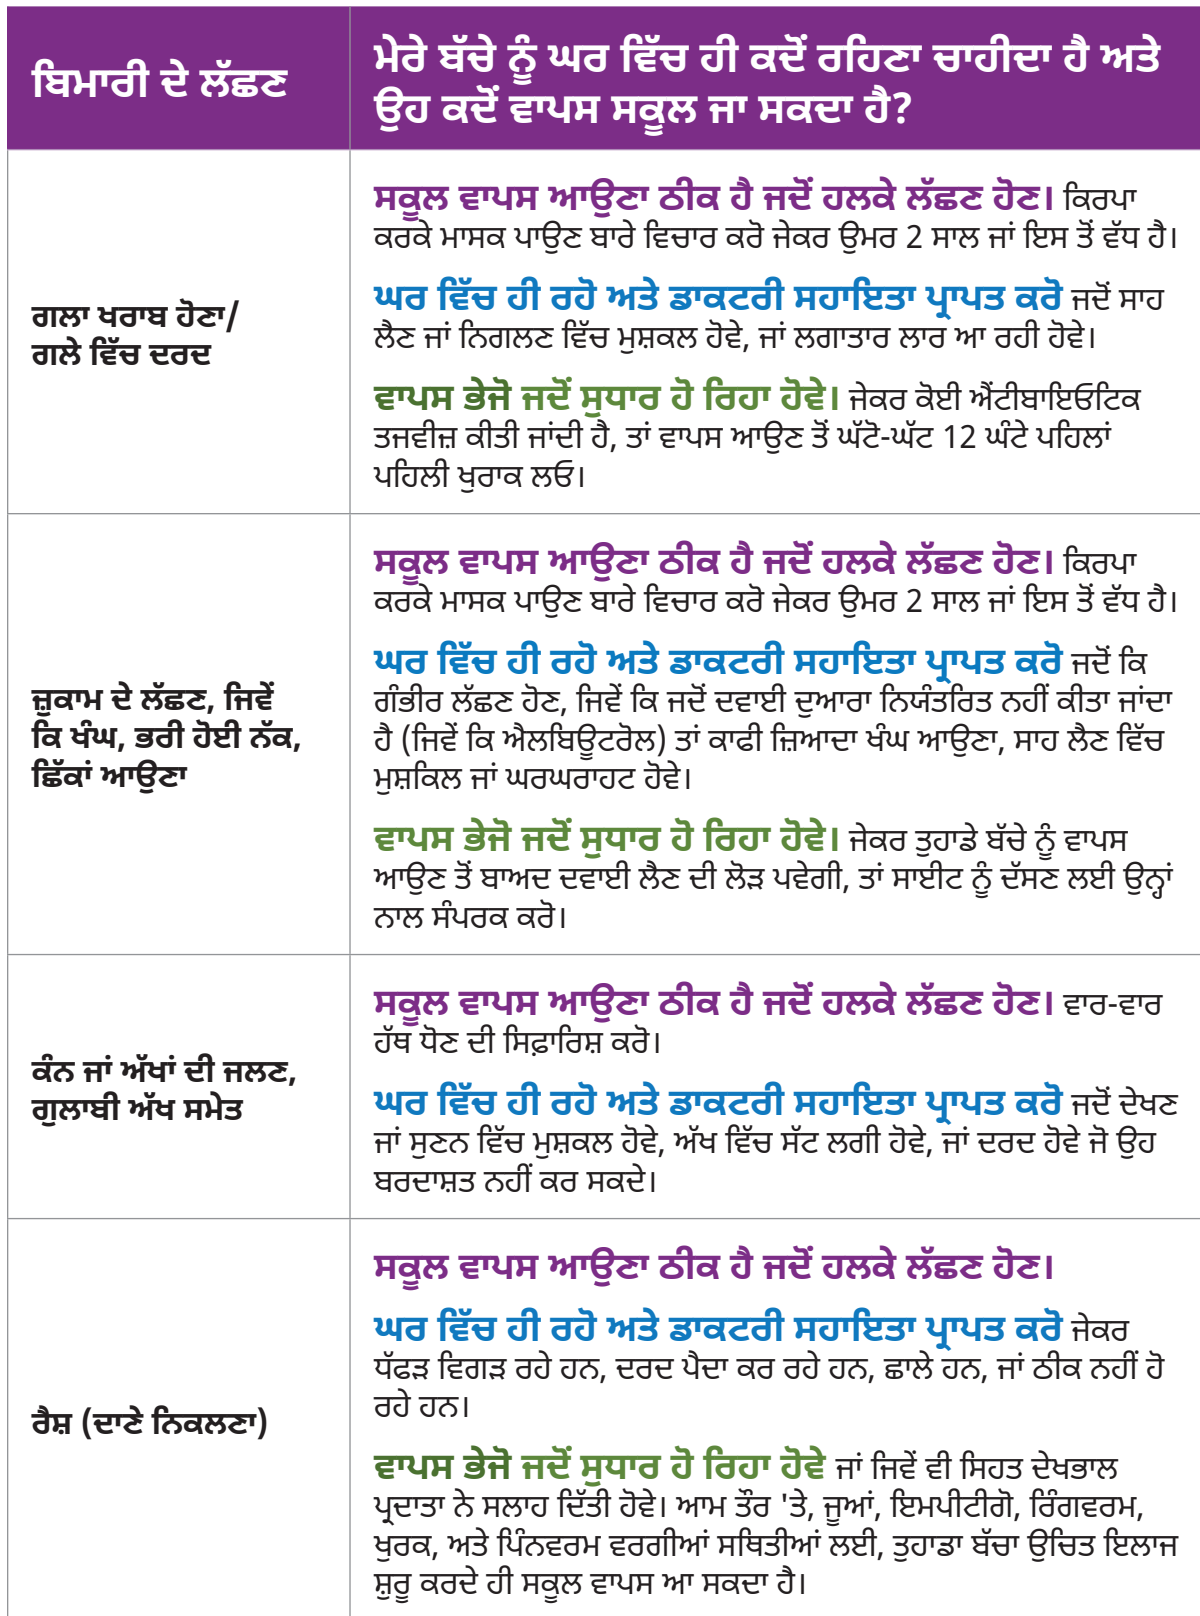 ਬਿਮਾਰੀ ਦੇ ਲੱਛਣ
ਮੇਰੇ ਬੱਚੇ ਨੂੰ ਘਰ ਵਿੱਚ ਹੀ ਕਦੋਂ ਰਹਿਣਾ ਚਾਹੀਦਾ ਹੈ ਅਤੇ
ਉਹ ਕਦੋਂ ਵਾਪਸ ਸਕੂਲ ਜਾ ਸਕਦਾ ਹੈ?
ਗਲਾ ਖਰਾਬ ਹੋਣਾ/
ਗਲੇ ਵਿੱਚ ਦਰਦ
ਸਕੂਲ ਵਾਪਸ ਆਉਣਾ ਠੀਕ ਹੈ ਜਦੋਂ ਹਲਕੇ ਲੱਛਣ ਹੋਣ। ਕਿਰਪਾ
ਕਰਕੇ ਮਾਸਕ ਪਾਉਣ ਬਾਰੇ ਵਿਚਾਰ ਕਰੋ ਜੇਕਰ ਉਮਰ 2 ਸਾਲ ਜਾਂ ਇਸ ਤੋਂ ਵੱਧ ਹੈ।
ਘਰ ਵਿੱਚ ਹੀ ਰਹੋ ਅਤੇ ਡਾਕਟਰੀ ਸਹਾਇਤਾ ਪ੍ਰਾਪਤ ਕਰੋ ਜਦੋਂ ਸਾਹ
ਲੈਣ ਜਾਂ ਨਿਗਲਣ ਵਿੱਚ ਮੁਸ਼ਕਲ ਹੋਵੇ, ਜਾਂ ਲਗਾਤਾਰ ਲਾਰ ਆ ਰਹੀ ਹੋਵੇ।
ਵਾਪਸ ਭੇਜੋ ਜਦੋਂ ਸੁਧਾਰ ਹੋ ਰਿਹਾ ਹੋਵੇ। ਜੇਕਰ ਕੋਈ ਐਂਟੀਬਾਇਓਟਿਕ
ਤਜਵੀਜ਼ ਕੀਤੀ ਜਾਂਦੀ ਹੈ, ਤਾਂ ਵਾਪਸ ਆਉਣ ਤੋਂ ਘੱਟੋ-ਘੱਟ 12 ਘੰਟੇ ਪਹਿਲਾਂ
ਪਹਿਲੀ ਖੁਰਾਕ ਲਓ।
ਜ਼ੁਕਾਮ ਦੇ ਲੱਛਣ, ਜਿਵੇਂ
ਕਿ ਖੰਘ, ਭਰੀ ਹੋਈ ਨੱਕ,
ਛਿੱਕਾਂ ਆਉਣਾ
ਸਕੂਲ ਵਾਪਸ ਆਉਣਾ ਠੀਕ ਹੈ ਜਦੋਂ ਹਲਕੇ ਲੱਛਣ ਹੋਣ। ਕਿਰਪਾ
ਕਰਕੇ ਮਾਸਕ ਪਾਉਣ ਬਾਰੇ ਵਿਚਾਰ ਕਰੋ ਜੇਕਰ ਉਮਰ 2 ਸਾਲ ਜਾਂ ਇਸ ਤੋਂ ਵੱਧ ਹੈ।
ਘਰ ਵਿੱਚ ਹੀ ਰਹੋ ਅਤੇ ਡਾਕਟਰੀ ਸਹਾਇਤਾ ਪ੍ਰਾਪਤ ਕਰੋ ਜਦੋਂ ਕਿ
ਗੰਭੀਰ ਲੱਛਣ ਹੋਣ, ਜਿਵੇਂ ਕਿ ਜਦੋਂ ਦਵਾਈ ਦੁਆਰਾ ਨਿਯੰਤਰਿਤ ਨਹੀਂ ਕੀਤਾ ਜਾਂਦਾ
ਹੈ (ਜਿਵੇਂ ਕਿ ਐਲਬਿਊਟਰੋਲ) ਤਾਂ ਕਾਫੀ ਜ਼ਿਆਦਾ ਖੰਘ ਆਉਣਾ, ਸਾਹ ਲੈਣ ਵਿੱਚ
ਮੁਸ਼ਕਿਲ ਜਾਂ ਘਰਘਰਾਹਟ ਹੋਵੇ।
ਵਾਪਸ ਭੇਜੋ ਜਦੋਂ ਸੁਧਾਰ ਹੋ ਰਿਹਾ ਹੋਵੇ। ਜੇਕਰ ਤੁਹਾਡੇ ਬੱਚੇ ਨੂੰ ਵਾਪਸ
ਆਉਣ ਤੋਂ ਬਾਅਦ ਦਵਾਈ ਲੈਣ ਦੀ ਲੋੜ ਪਵੇਗੀ, ਤਾਂ ਸਾਈਟ ਨੂੰ ਦੱਸਣ ਲਈ ਉਨ੍ਹਾਂ
ਨਾਲ ਸੰਪਰਕ ਕਰੋ।
ਕੰਨ ਜਾਂ ਅੱਖਾਂ ਦੀ ਜਲਣ,
ਗੁਲਾਬੀ ਅੱਖ ਸਮੇਤ
ਸਕੂਲ ਵਾਪਸ ਆਉਣਾ ਠੀਕ ਹੈ ਜਦੋਂ ਹਲਕੇ ਲੱਛਣ ਹੋਣ। ਵਾਰ-ਵਾਰ
ਹੱਥ ਧੋਣ ਦੀ ਸਿਫ਼ਾਰਿਸ਼ ਕਰੋ।
ਘਰ ਵਿੱਚ ਹੀ ਰਹੋ ਅਤੇ ਡਾਕਟਰੀ ਸਹਾਇਤਾ ਪ੍ਰਾਪਤ ਕਰੋ ਜਦੋਂ ਦੇਖਣ
ਜਾਂ ਸੁਣਨ ਵਿੱਚ ਮੁਸ਼ਕਲ ਹੋਵੇ, ਅੱਖ ਵਿੱਚ ਸੱਟ ਲਗੀ ਹੋਵੇ, ਜਾਂ ਦਰਦ ਹੋਵੇ ਜੋ ਉਹ
ਬਰਦਾਸ਼ਤ ਨਹੀਂ ਕਰ ਸਕਦੇ।
ਰੈਸ਼ (ਦਾਣੇ ਨਿਕਲਣਾ)
ਸਕੂਲ ਵਾਪਸ ਆਉਣਾ ਠੀਕ ਹੈ ਜਦੋਂ ਹਲਕੇ ਲੱਛਣ ਹੋਣ।
ਘਰ ਵਿੱਚ ਹੀ ਰਹੋ ਅਤੇ ਡਾਕਟਰੀ ਸਹਾਇਤਾ ਪ੍ਰਾਪਤ ਕਰੋ ਜੇਕਰ
ਧੱਫੜ ਵਿਗੜ ਰਹੇ ਹਨ, ਦਰਦ ਪੈਦਾ ਕਰ ਰਹੇ ਹਨ, ਛਾਲੇ ਹਨ, ਜਾਂ ਠੀਕ ਨਹੀਂ ਹੋ
ਰਹੇ ਹਨ।
ਵਾਪਸ ਭੇਜੋ ਜਦੋਂ ਸੁਧਾਰ ਹੋ ਰਿਹਾ ਹੋਵੇ ਜਾਂ ਜਿਵੇਂ ਵੀ ਸਿਹਤ ਦੇਖਭਾਲ
ਪ੍ਰਦਾਤਾ ਨੇ ਸਲਾਹ ਦਿੱਤੀ ਹੋਵੇ। ਆਮ ਤੌਰ 'ਤੇ, ਜੂਆਂ, ਇਮਪੀਟੀਗੋ, ਰਿੰਗਵਰਮ,
ਖੁਰਕ, ਅਤੇ ਪਿੰਨਵਰਮ ਵਰਗੀਆਂ ਸਥਿਤੀਆਂ ਲਈ, ਤੁਹਾਡਾ ਬੱਚਾ ਉਚਿਤ ਇਲਾਜ
ਸ਼ੁਰੂ ਕਰਦੇ ਹੀ ਸਕੂਲ ਵਾਪਸ ਆ ਸਕਦਾ ਹੈ।